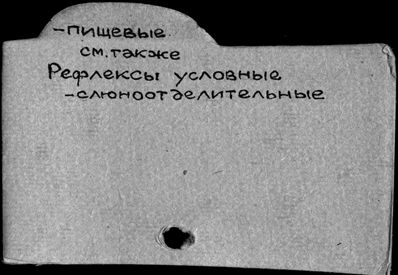 -пищевые
см. также
Рефлексы условные
-слюноотделительные